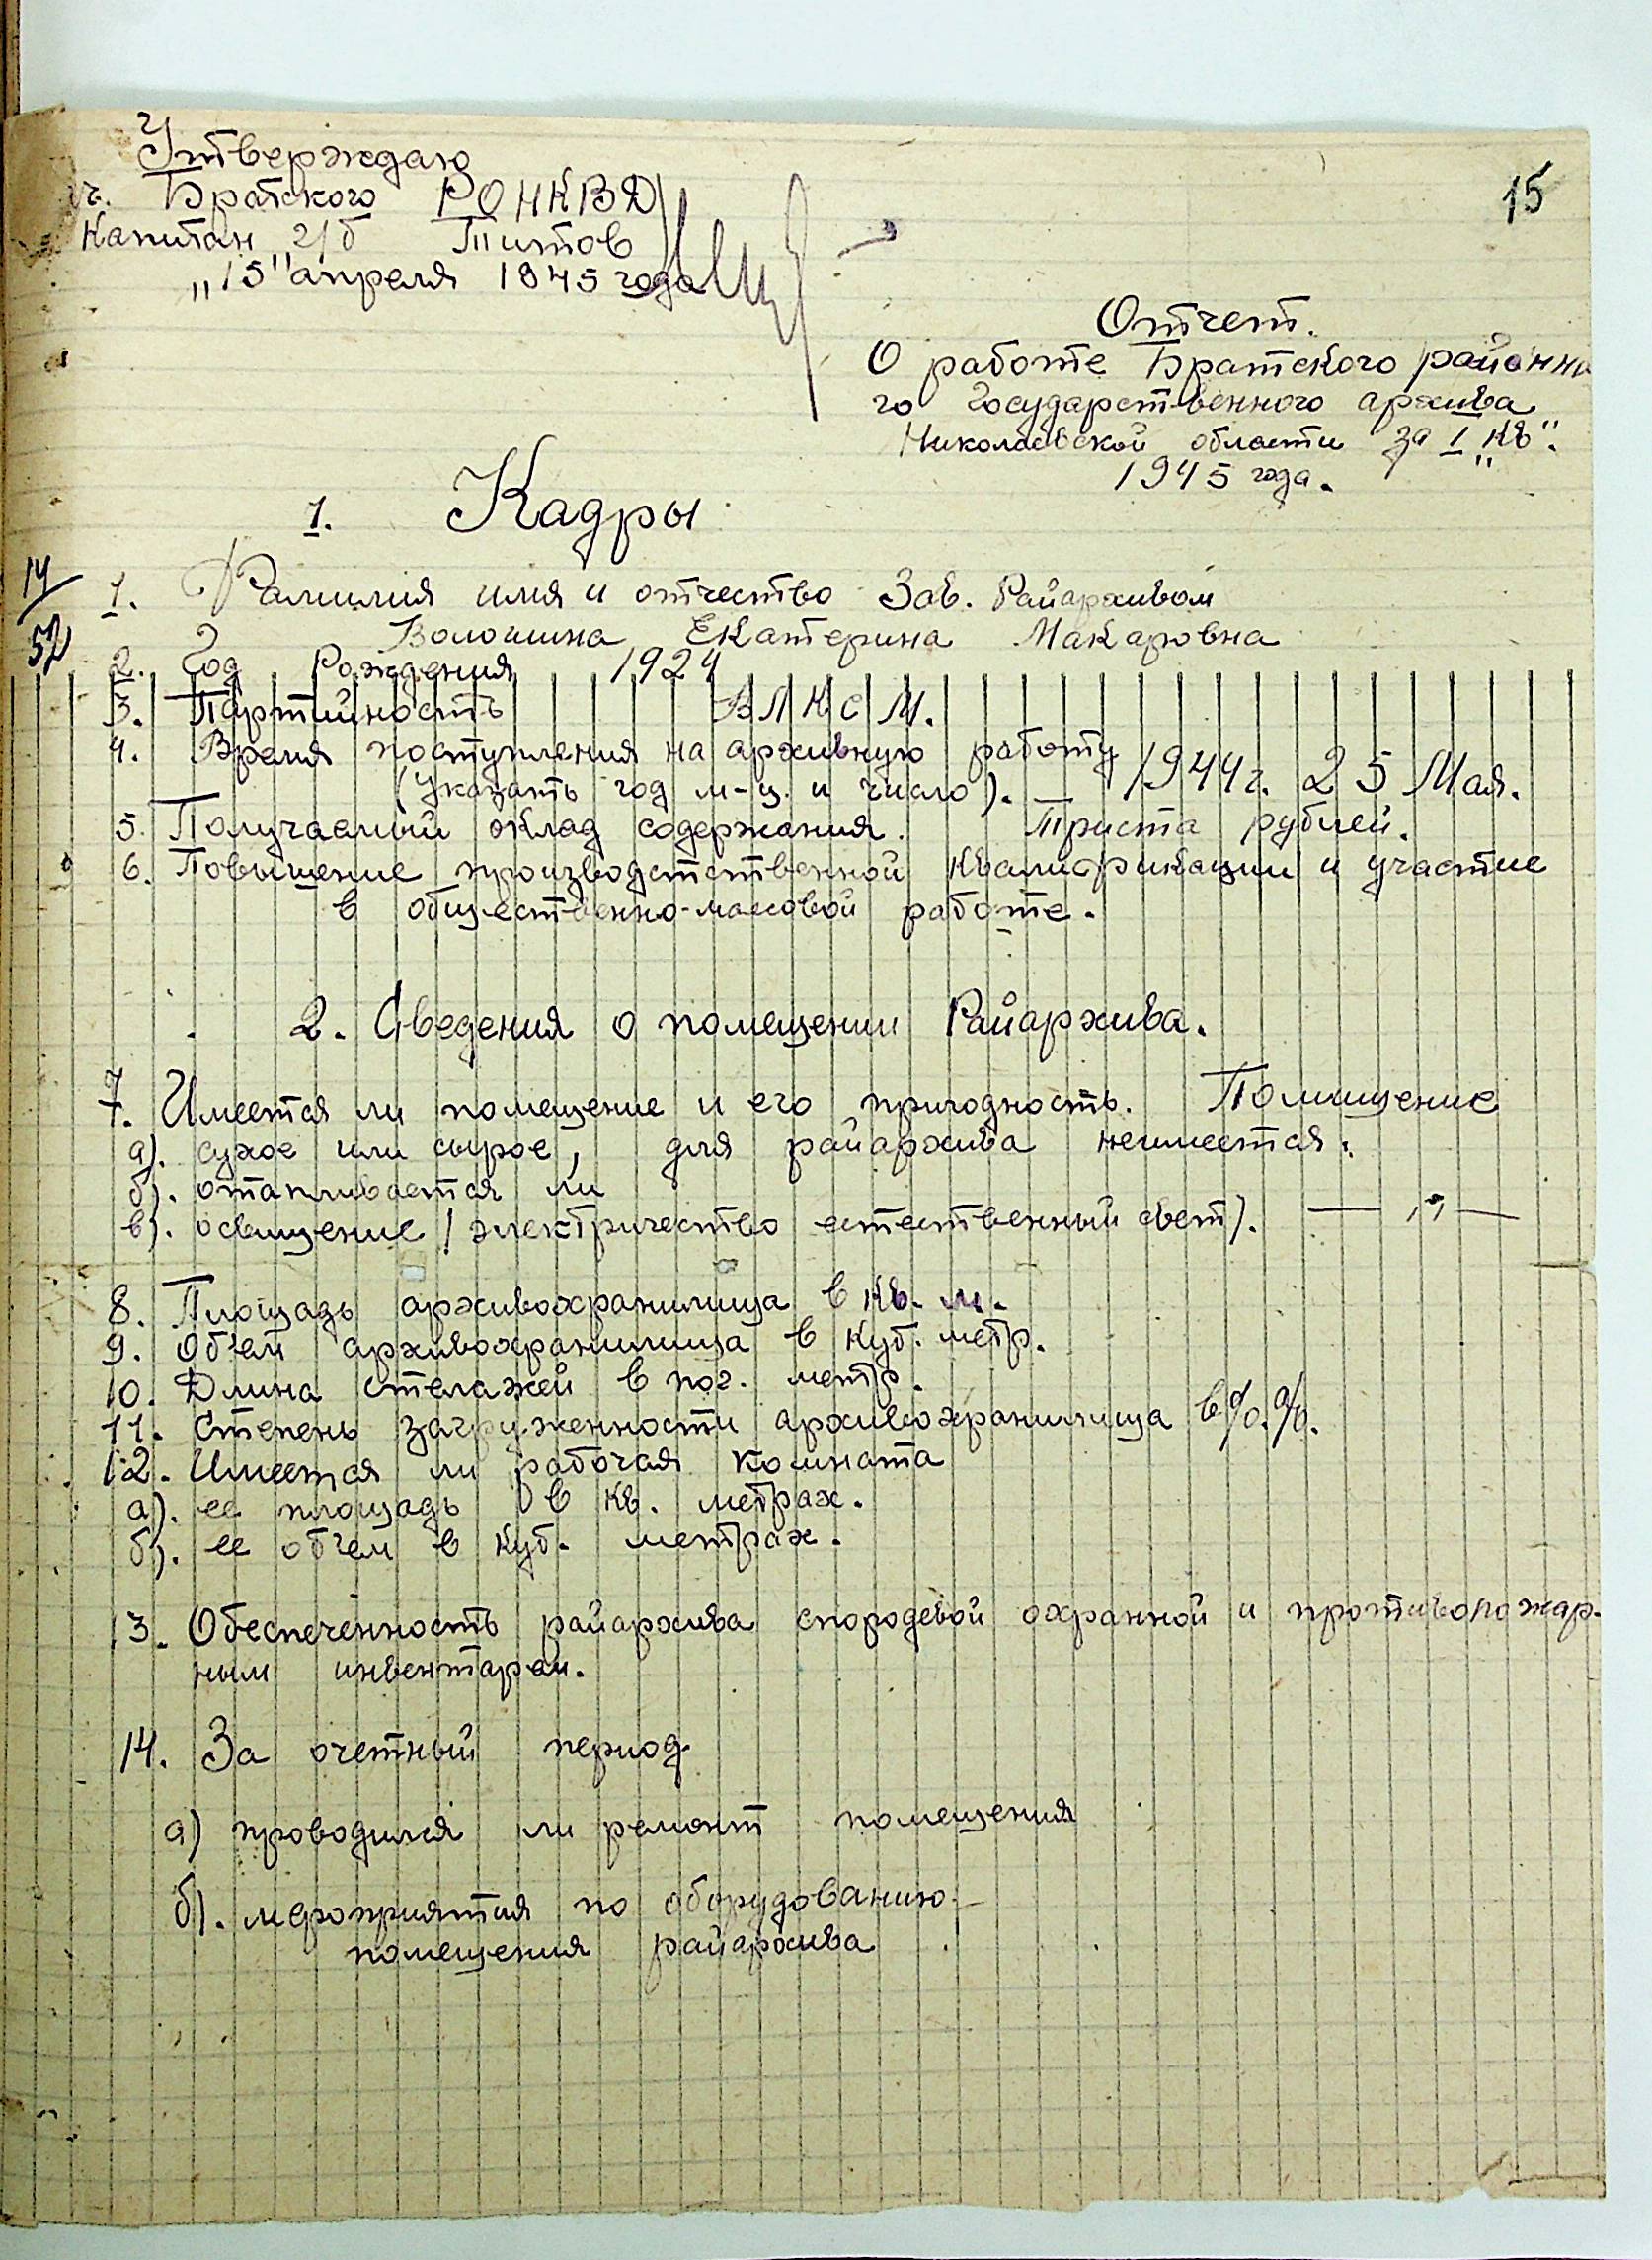 Утверждаю
ч. Братского РОНКВД
Капитан г/б Титов
„15" апреля 1945 года
15
Отчет.
О работе Братского районно
го Государственного архива
Николаевской области за I „Кв".
1945 года.
1. Кадры
14/52
1. Фамилия имя и отчество Зав. Райархивом
Волошина Екатерина Макаровна
2. Год Рождения 1924
3. Партийность ВЛКСМ.
4. Время поступления на архивную работу
(Указать год м-ц. и число). 1944г. 25 Мая.
5. Получаемый оклад содержания. Триста рублей.
6. Повышение производстственной квалификации и участие
в общественно-массовой работе.
2. Сведения о помещении Райархива.
7. Имеется ли помещение и его пригодность. Помищение
а). сухое или сырое, для райархива неимеется.
б). отапливается ли
в). освищение / электричество естественный свет). — „ —
8. Площадь архивохранилища в кв. м.
9. Об'ем архивохранилища в куб. метр.
10. Длина стелажей в пог. метр.
11. Степень загруженности архивохранилища в %.%.
12. Имеется ли рабочая комната
а). ее площадь в кв. метрах.
б). ее об'ем в куб. метрах.
13. Обеспеченность райархива охранной и противопожар-
ным инвентарем.
14. За очетный период
а) проводился ли ремонт помещения
б). мероприятия по оборудованию
помещения райархива